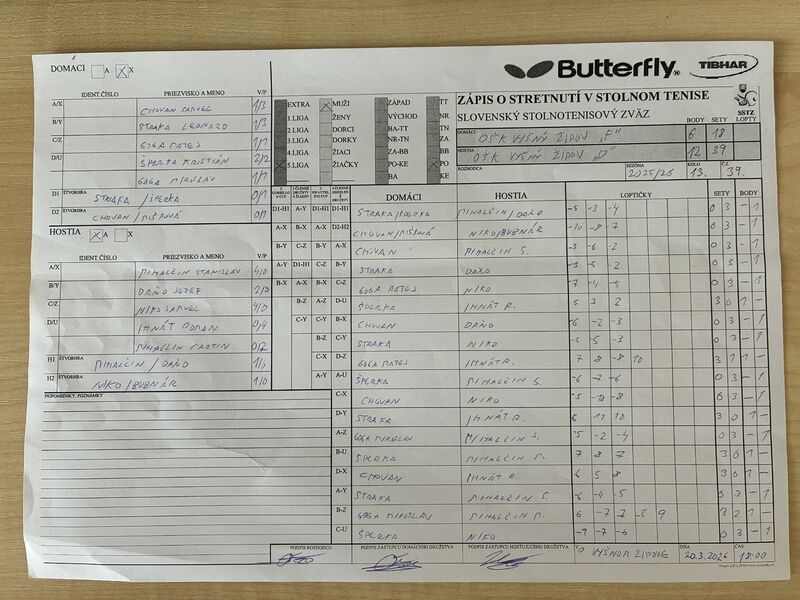 DOMÁCI A X
Butterfly®
TIBHAR
IDENT.ČÍSLO PRIEZVISKO A MENO V/P
A/X CHOVAN SAMUEL 1/3
B/Y STRAKA LEONARD 1/3
C/Z GOGA MATEJ 1/1
D/U ŠPERKA KRISTIÁN 2/2
GOGA MIROSLAV 1/1
D1 ŠTVORHRA STRAKA / ŠPERKA 0/1
D2 CHOVAN / 0/1
HOSTIA A X
IDENT.ČÍSLO PRIEZVISKO A MENO V/P
A/X MIHALČIN STANISLAV 4/0
B/Y DAŇO JOZEF 2/0
C/Z NIKO SAMUEL 4/0
D/U IHNÁT ROMAN 0/4
MIHALČIN MARTIN 0/2
H1 ŠTVORHRA MIHALČIN / DAŇO 1/0
H2 ŠTVORHRA NIKO / BUBNÁR 1/0
PRIPOMIENKY, POZNÁMKY
EXTRA MUŽI ZÁPAD TT
1.LIGA ŽENY VÝCHOD NR
2.LIGA DORCI BA-TT TN
3.LIGA DORKY NR-TN ZA
4.LIGA ŽIACI ZA-BB BB
5.LIGA ŽIAČKY PO-KE PO
BA KE
ZÁPIS O STRETNUTÍ V STOLNOM TENISE
SLOVENSKÝ STOLNOTENISOVÝ ZVÄZ
SSTZ
BODY SETY LOPTY
DOMÁCI OŠK VYŠNÝ ŽIPOV „F" 6 18
HOSTIA OŠK VYŠNÝ ŽIPOV „D" 12 39
ROZHODCA SEZÓNA 2025/26 KOLO 13. Č. 39.
DOMÁCI HOSTIA LOPTIČKY SETY BODY
D1-H1 A-Y D1-H1 D1-H1 STRAKA/ŠPERKA MIHALČIN/DAŇO -5 -3 -4 0 3 - 1
A-X B-X A-X D2-H2 NIKO/BUBNÁR -10 -8 -7 0 3 - 1
B-Y C-Z B-Y A-X CHOVAN MIHALČIN S. -3 -6 -2 0 3 - 1
A-Y D1-H1 C-Z B-Y STRAKA DAŇO -3 -5 -2 0 3 - 1
B-X A-X B-X C-Z GOGA MATEJ NIKO -7 -4 -5 0 3 - 1
B-Z A-Z D-U ŠPERKA IHNÁT R. 5 3 2 3 0 1 -
C-Y C-Y B-X CHOVAN DAŇO -6 -2 -3 0 3 - 1
B-Z C-Y STRAKA NIKO -5 -5 -3 0 3 - 1
C-X D-Z GOGA MATEJ IHNÁT R. 7 8 -8 10 3 1 1 -
A-Y A-U ŠPERKA MIHALČIN S. -6 -7 -6 0 3 - 1
C-X CHOVAN NIKO -5 -10 -8 0 3 - 1
D-Y STRAKA IHNÁT R. 6 11 10 3 0 1 -
A-Z GOGA MIROSLAV MIHALČIN S. -5 -2 -4 0 3 - 1
B-U ŠPERKA MIHALČIN M. 7 8 7 3 0 1 -
D-X CHOVAN IHNÁT R. 6 5 8 3 0 1 -
A-Y STRAKA MIHALČIN S. -6 -4 -5 0 3 - 1
B-Z GOGA MIROSLAV MIHALČIN M. 6 -7 -7 3 9 3 2 1 -
C-U ŠPERKA NIKO -9 -7 -6 0 3 - 1
PODPIS ROZHODCU PODPIS ZÁSTUPCU DOMÁCEHO DRUŽSTVA PODPIS ZÁSTUPCU HOSŤUJÚCEHO DRUŽSTVA
V VYŠNOM ŽIPOVE DŇA 20.3.2026 ČAS 18:00